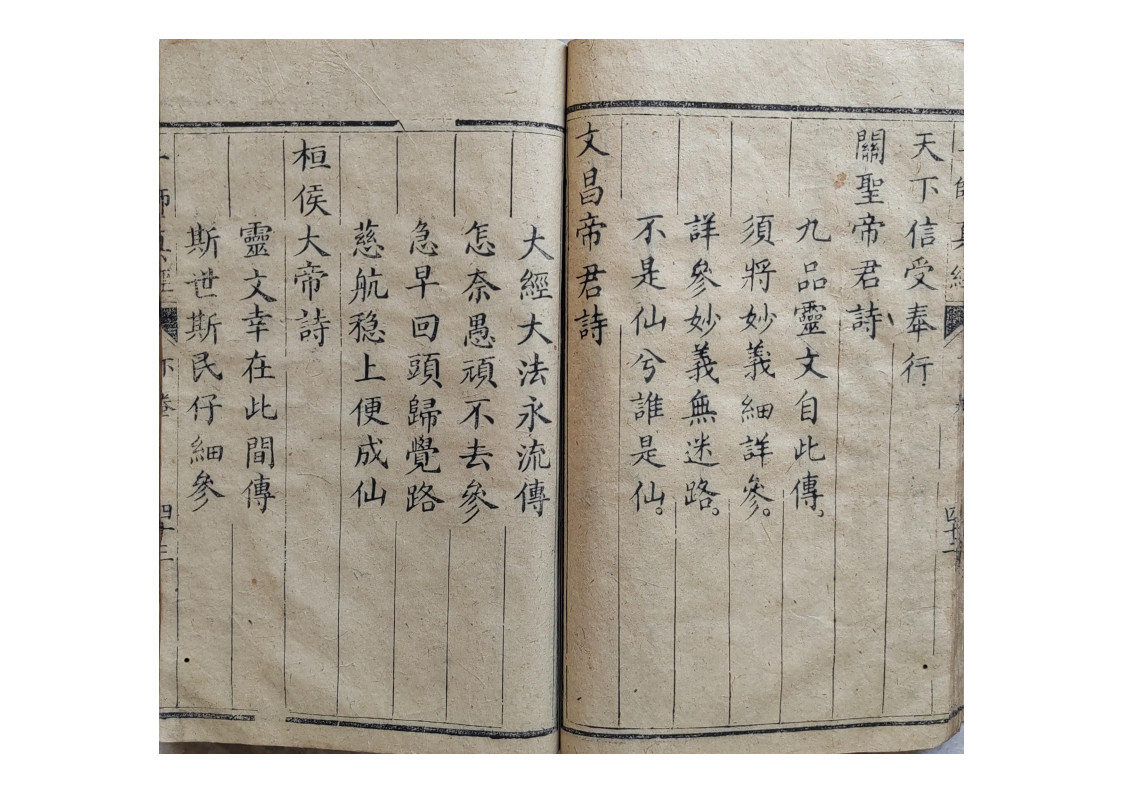 天下信受奉行
關聖帝君詩
九品靈文自此傳。
須將妙義細詳參。
詳參妙義無迷路。
不是仙兮誰是仙。
文昌帝君詩
大經大法永流傳
怎奈愚頑不去參
急早回頭歸覺路
慈航穩上便成仙
桓侯大帝詩
靈文幸在此間傳
斯世斯民仔細參
四十三